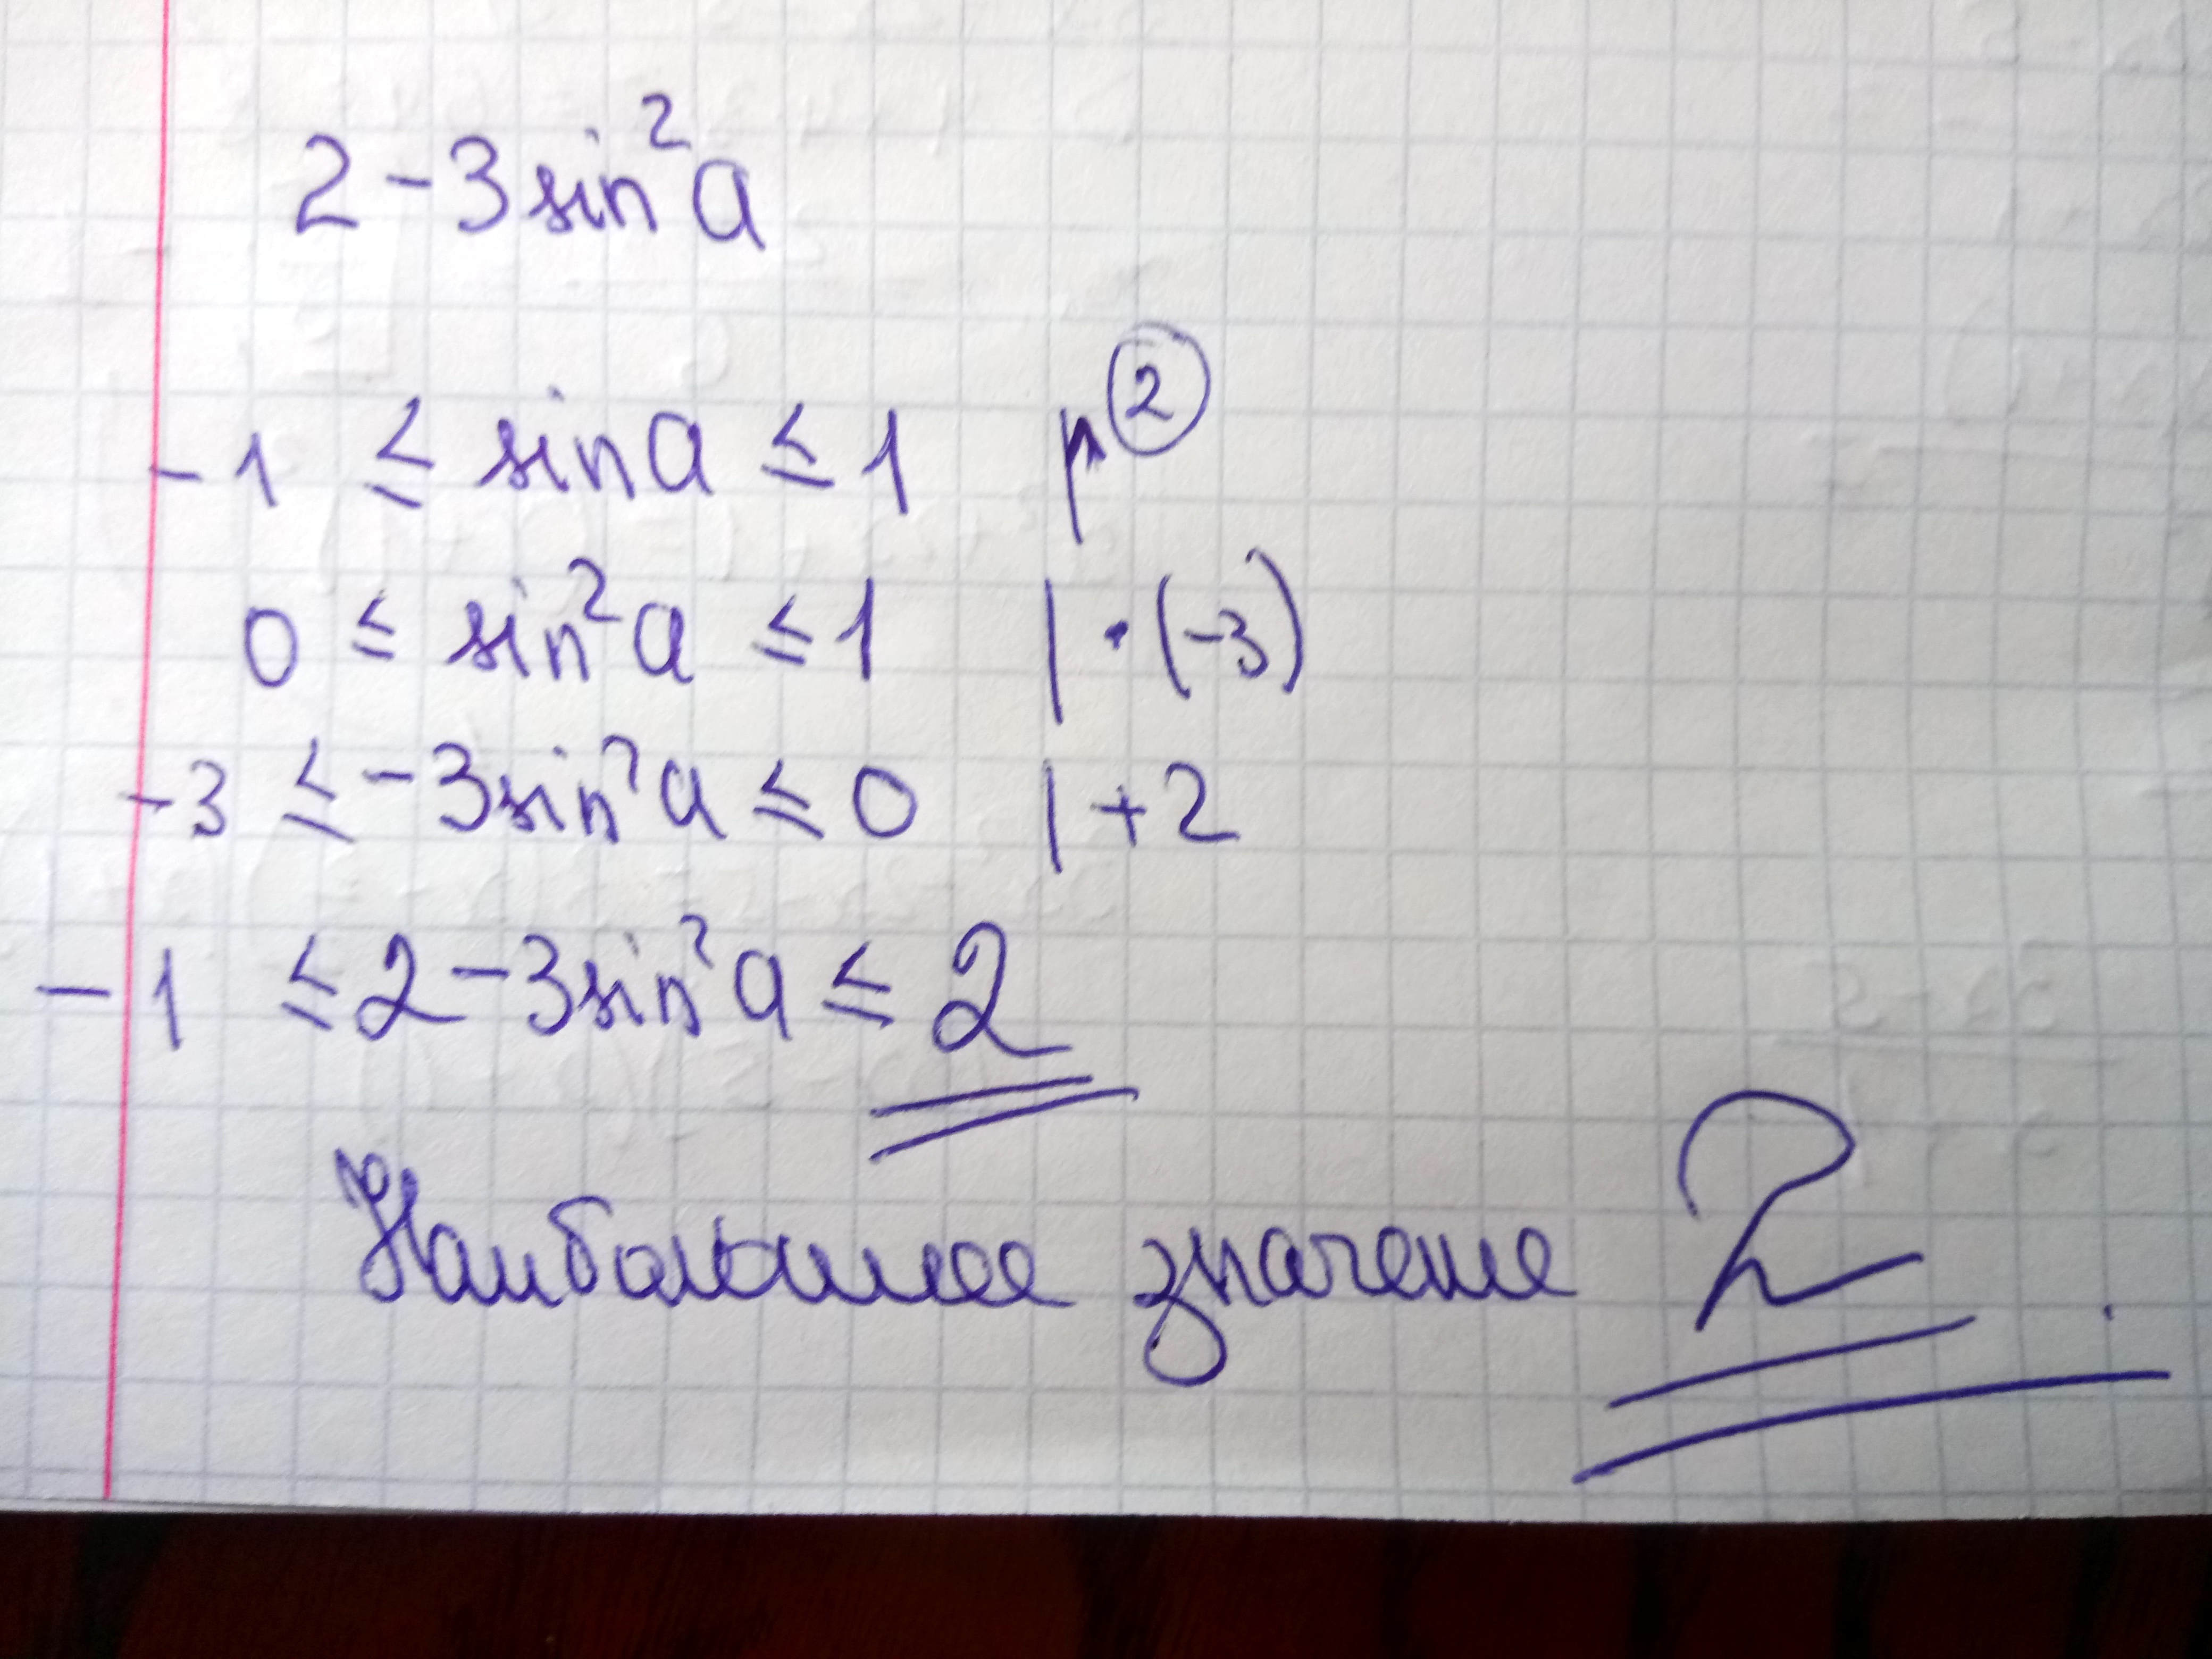 2-3sin²a
-1 ≤ sina ≤ 1 ↑②
0 ≤ sin²a ≤ 1 | · (-3)
-3 ≤ -3sin²a ≤ 0 | +2
-1 ≤ 2-3sin²a ≤ 2
Наибольшее значение 2.